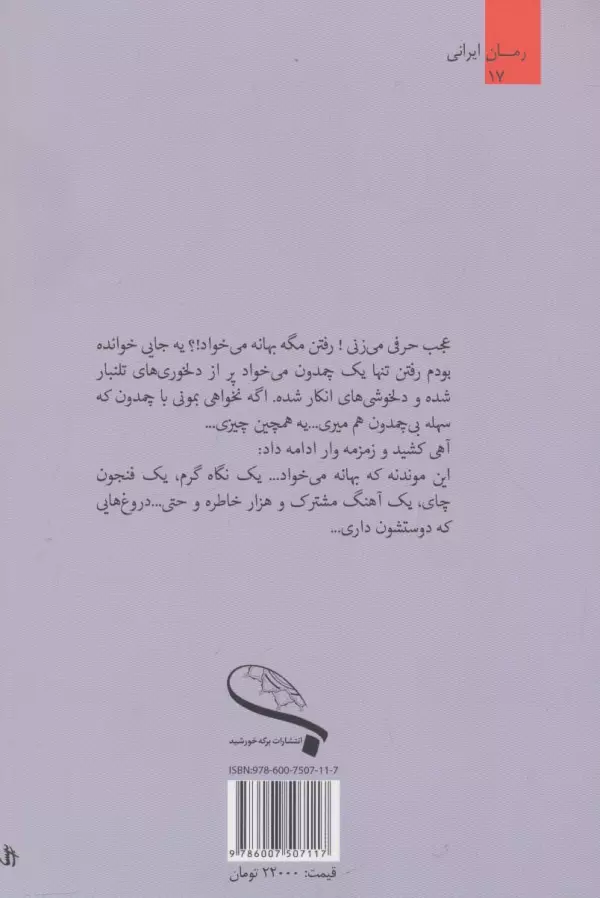 رمان ایرانی
۱۷
عجب حرفی می‌زنی ! رفتن مگه بهانه می‌خواد!؟ یه جایی خوانده
بودم رفتن تنها یک چمدون می‌خواد پر از دلخوری‌های تلنبار
شده و دلخوشی‌های انکار شده. اگه نخواهی بمونی با چمدون که
سهله بی‌چمدون هم میری...یه همچین چیزی...
آهی کشید و زمزمه وار ادامه داد:
این موندنه که بهانه می‌خواد... یک نگاه گرم، یک فنجون
چای، یک آهنگ مشترک و هزار خاطره و حتی...دروغ‌هایی
که دوستشون داری...
انتشارات برکه خورشید
ISBN:978-600-7507-11-7
9 786007 507117
قیمت: ۲۲۰۰۰ تومان